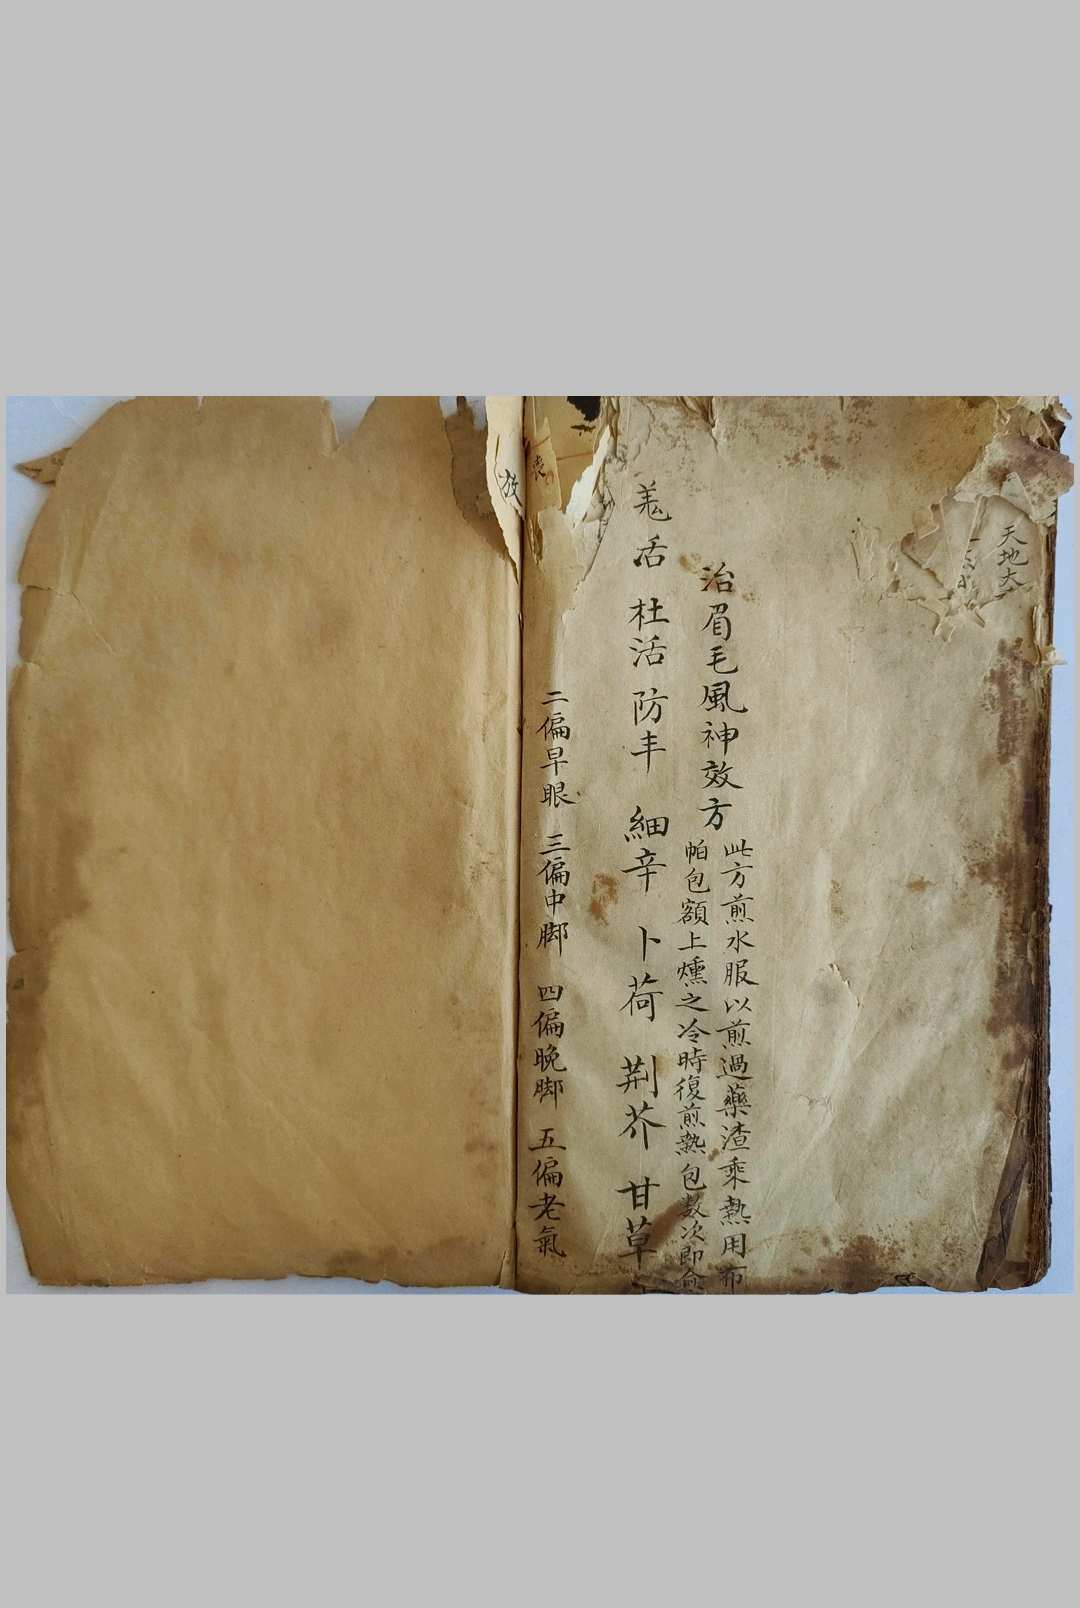 天地大
治眉毛風神效方
此方煎水服以煎過藥渣乘熱用布
帕包額上燻之冷時復煎熱包数次即愈
羗活 杜活 防丰 細辛 卜荷 荆芥 甘草
二偏早眼 三偏中脚 四偏晚脚 五偏老氣
放